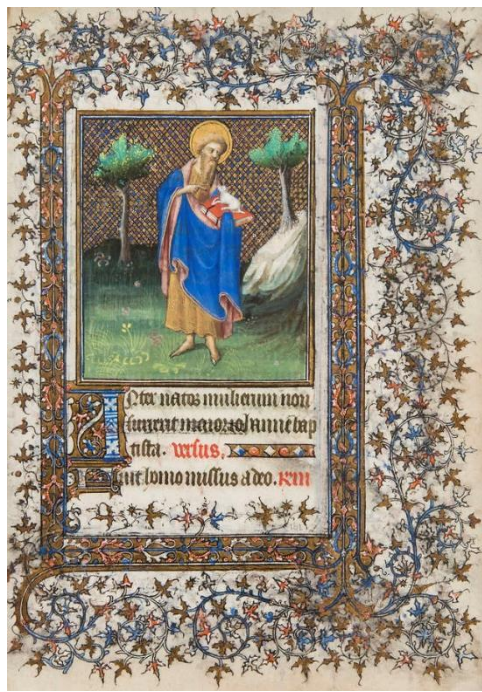 Inter natos mulierum non
surrexit maior iohanne bap
tista. versus.
Fuit homo missus adeo.